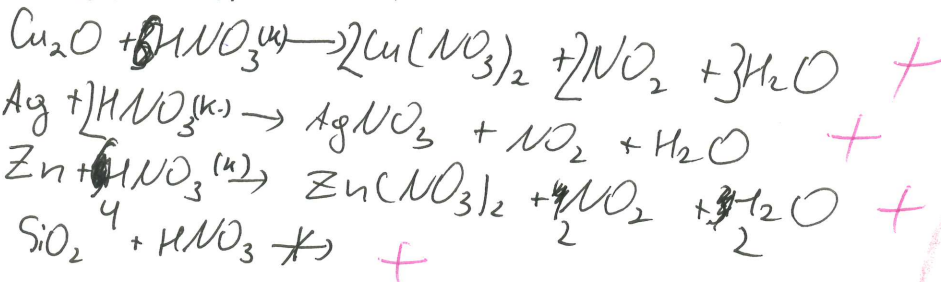 Cu₂O + 6HNO₃(к) → 2Cu(NO₃)₂ + 2NO₂ + 3H₂O +
Ag + 2HNO₃(к.) → AgNO₃ + NO₂ + H₂O +
Zn + 4HNO₃(к) → Zn(NO₃)₂ + 2NO₂ + 2H₂O +
SiO₂ + HNO₃ ↛ +